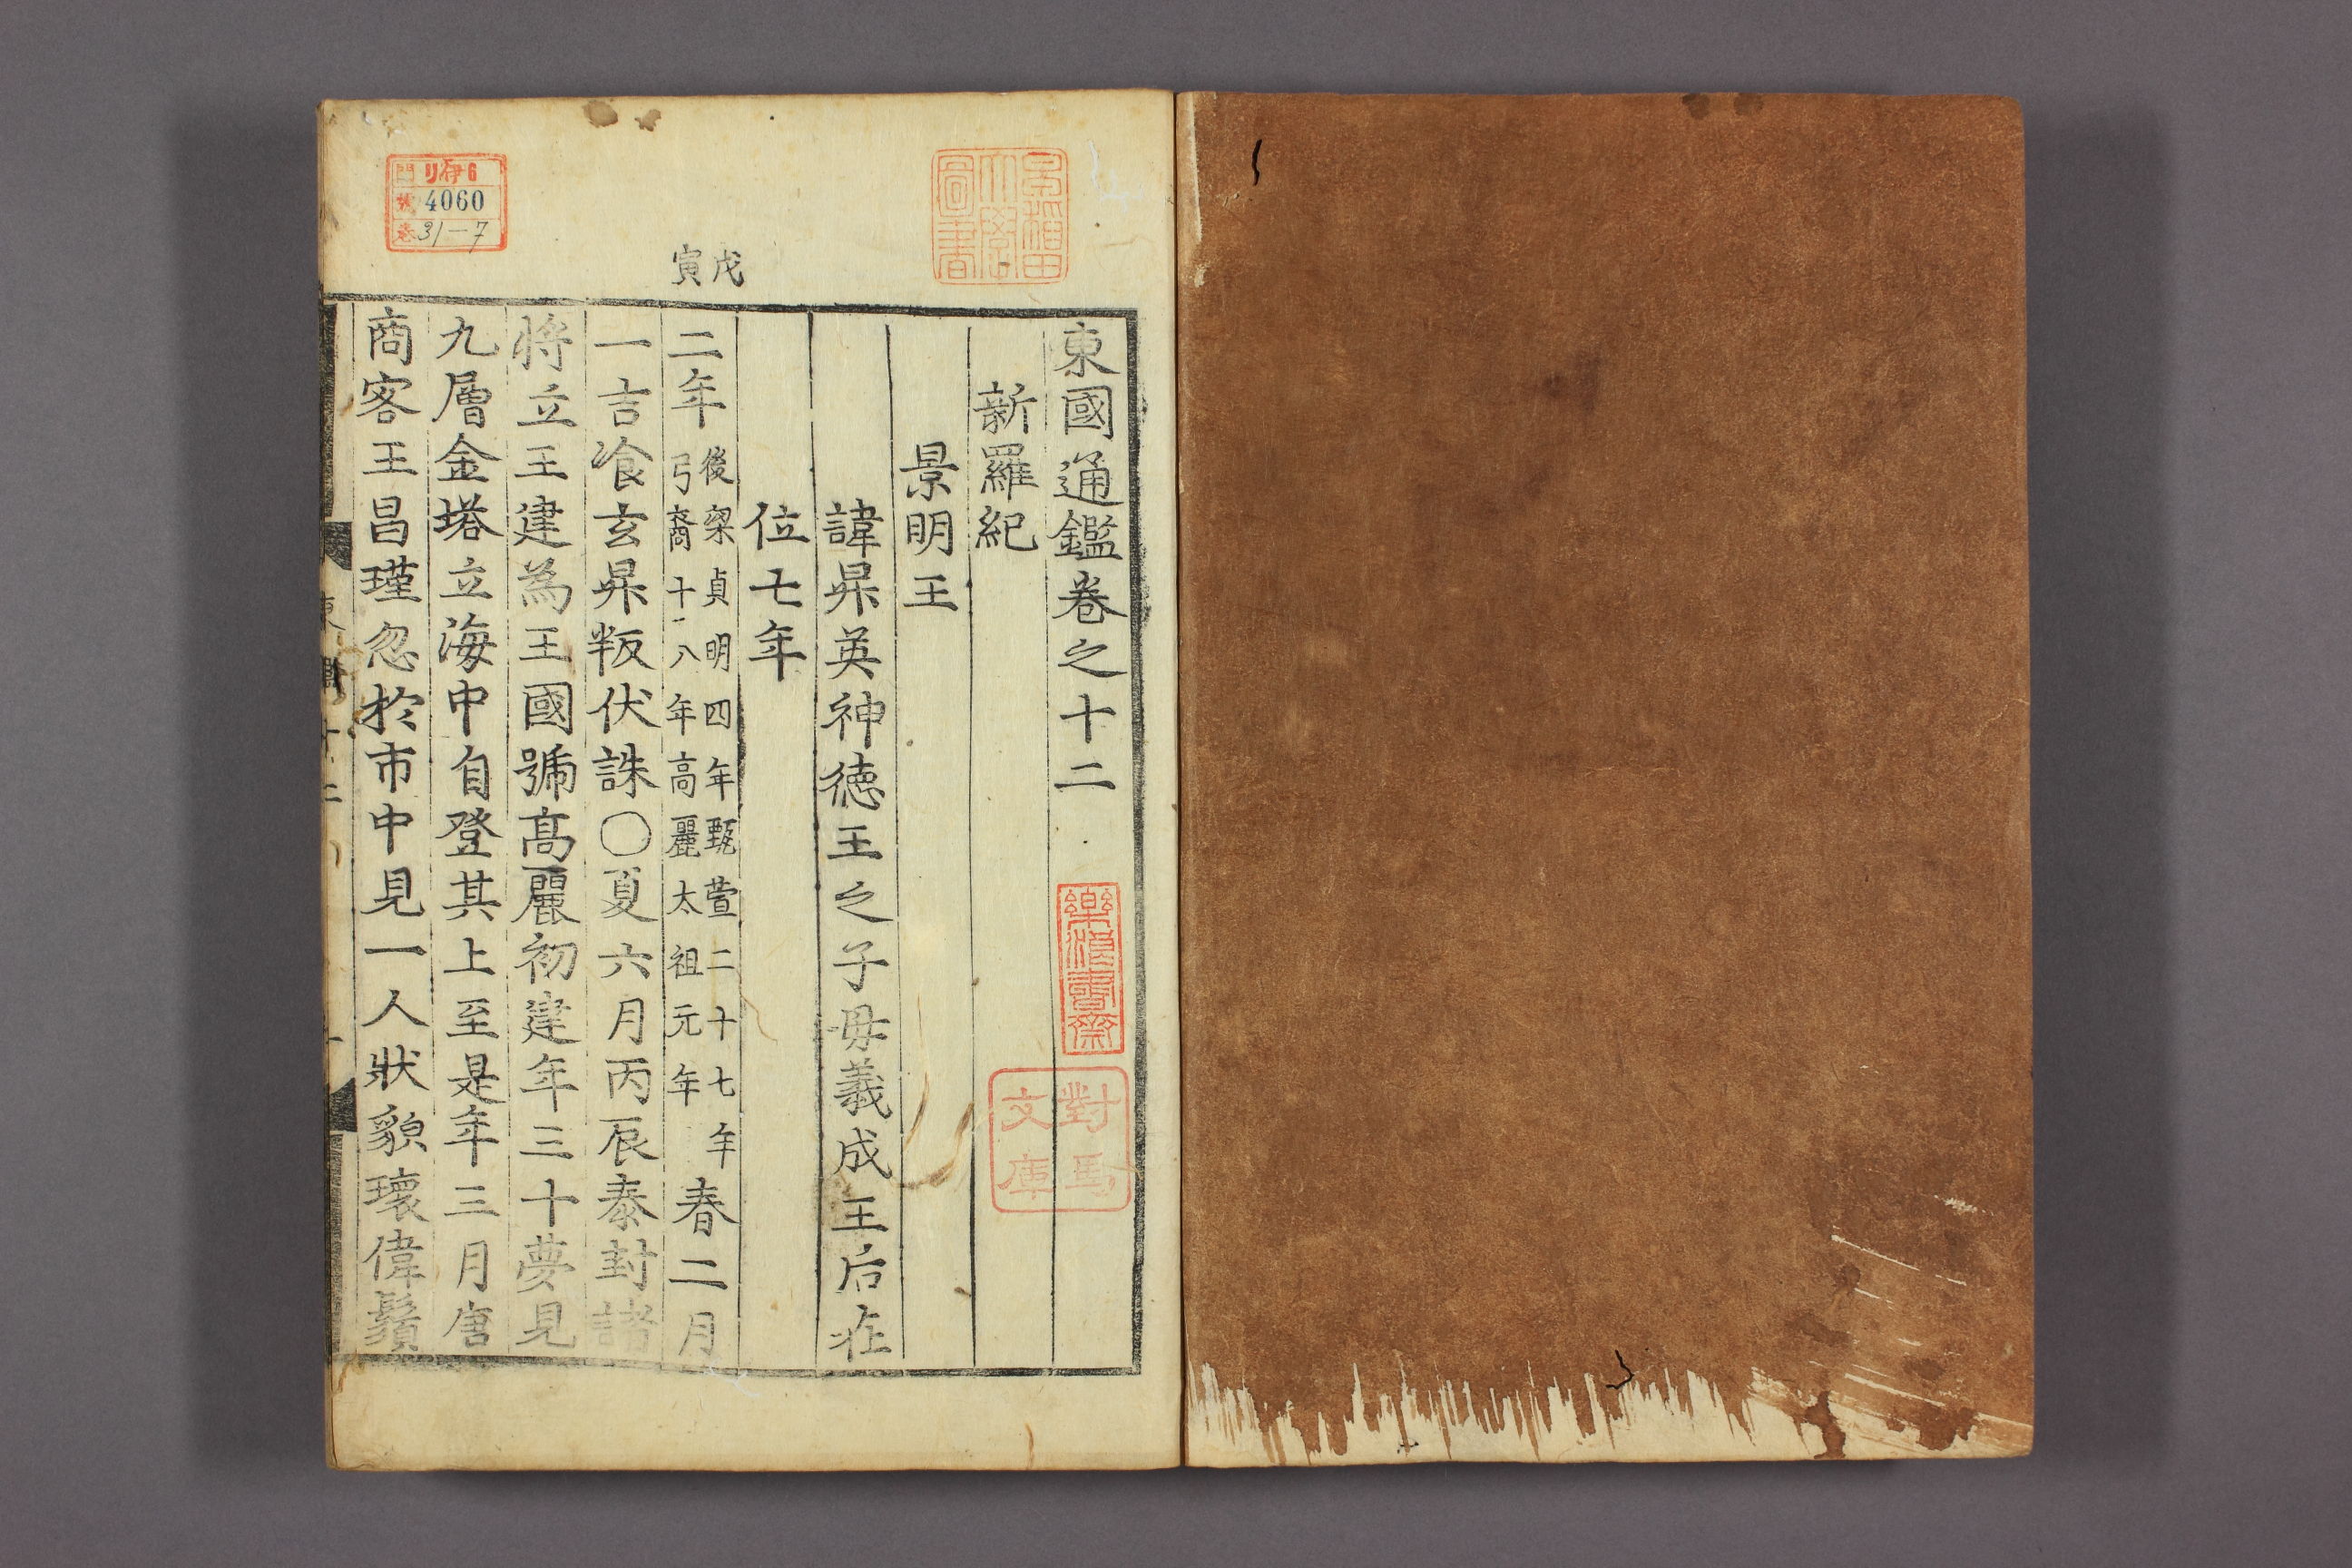 東國通鑑卷之十二
新羅紀
景明王
諱昇英神德王之子母義成王后在
位七年
戊寅
二年
後梁貞明四年甄萱二十七年
弓裔十八年高麗太祖元年
春二月
一吉飡玄昇叛伏誅〇夏六月丙辰泰封諸
將立王建爲王國號高麗初建年三十夢見
九層金塔立海中自登其上至是年三月唐
商客王昌瑾忽於市中見一人狀貌瓌偉鬚
早稻田
大學
圖書
樂浪書齋
對馬
文庫
門 リ伊6
號 4060
卷 31-7